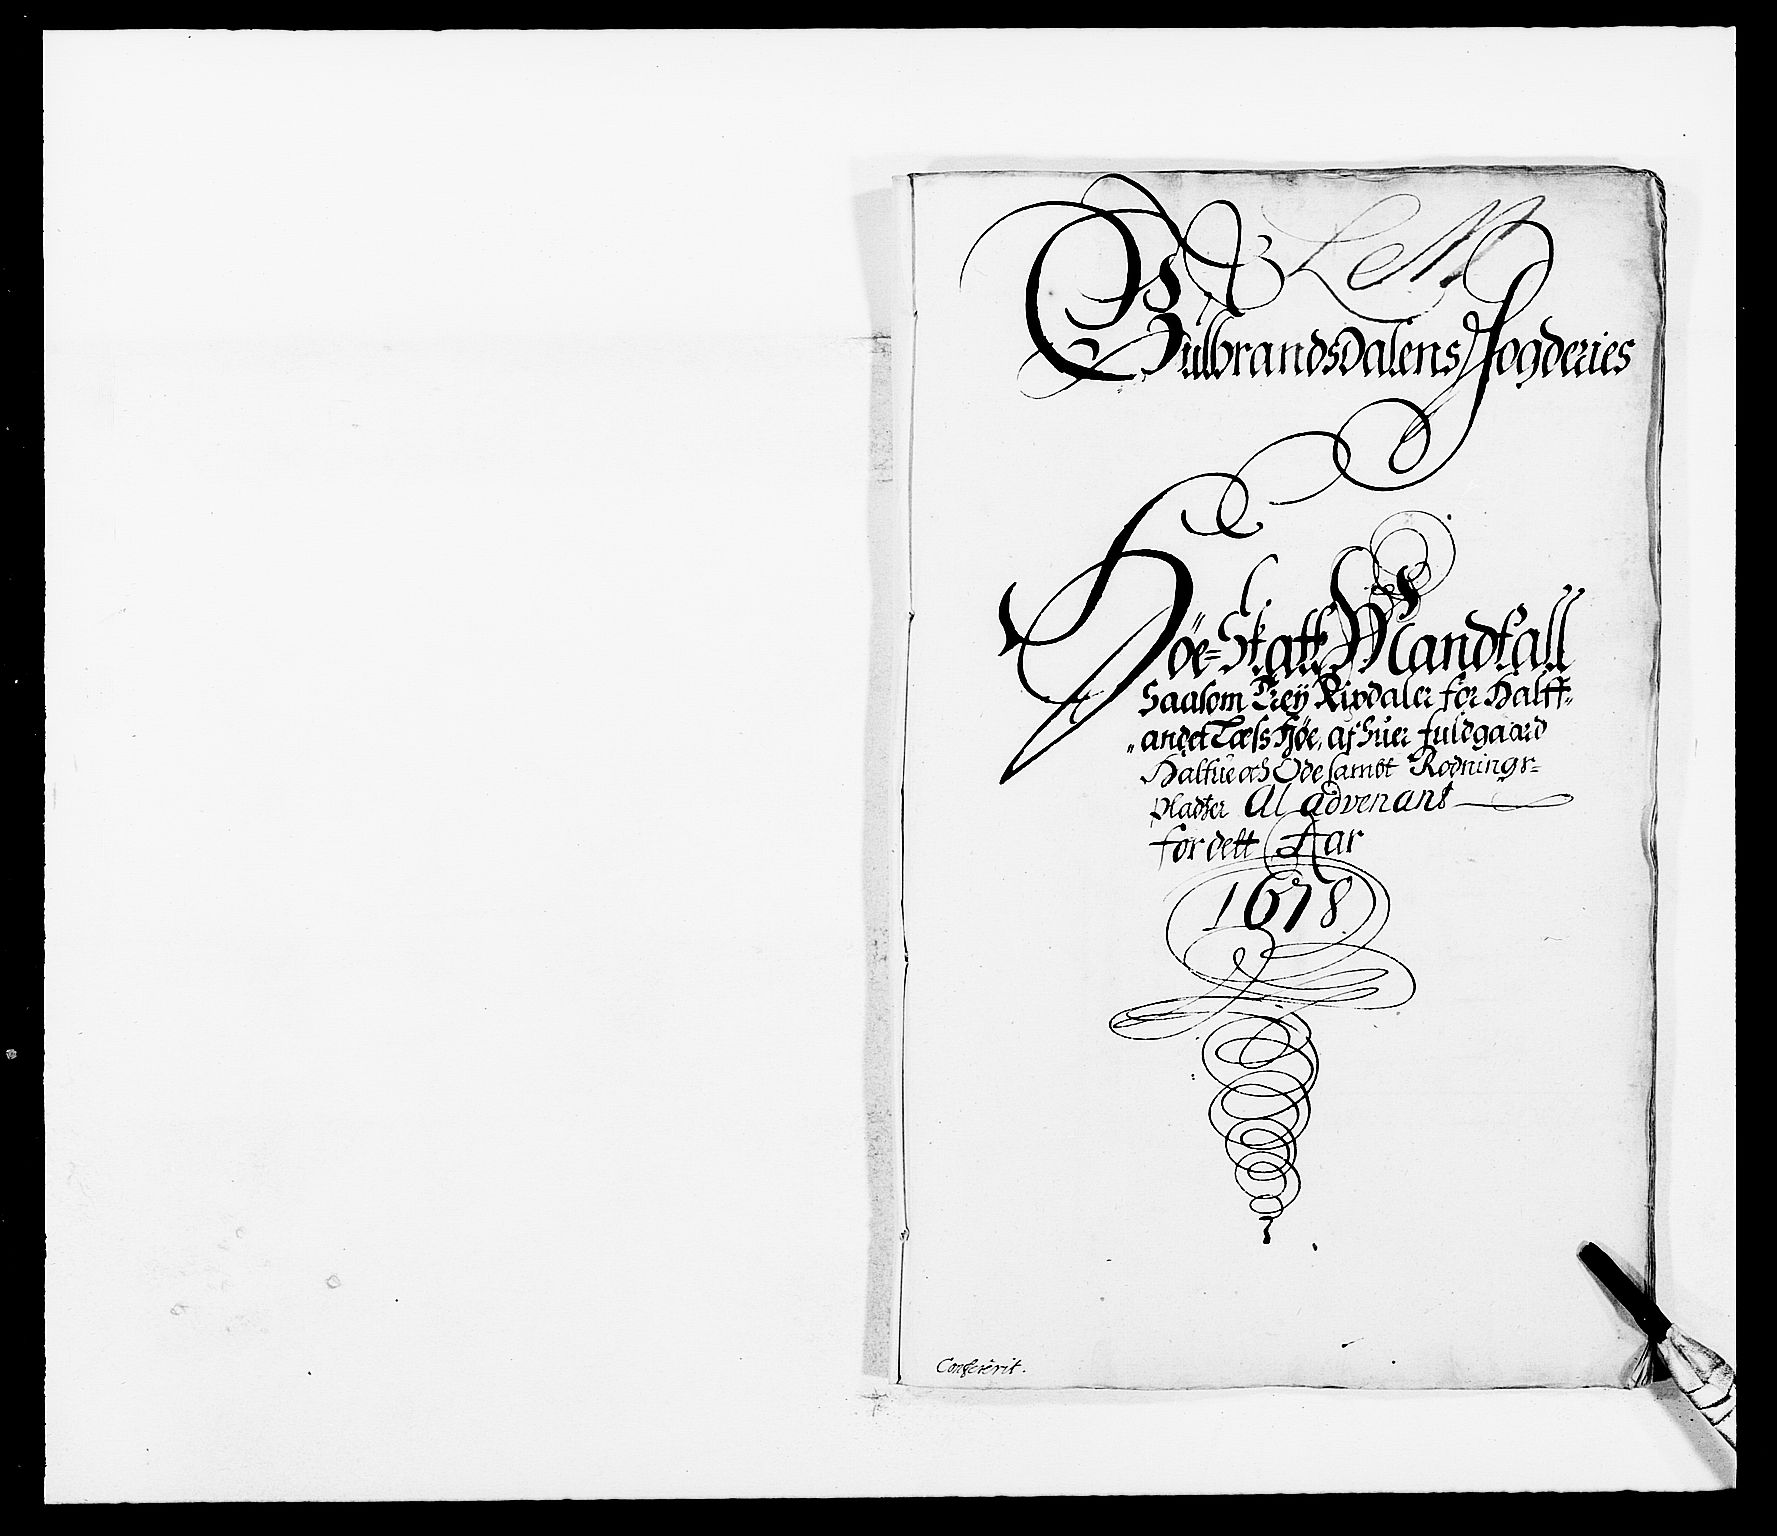 L e M
Gulbrandsdalens Fogderies
Höe-Skatt Mandtall
Saasom Treÿ Rixdaler for Halff-
andet Læss Höe, af huer fuldgaard
Halfue och Öde sambt Rodnings-
Pladtzer Al advenant
for dett Aar
1678
Confererit.